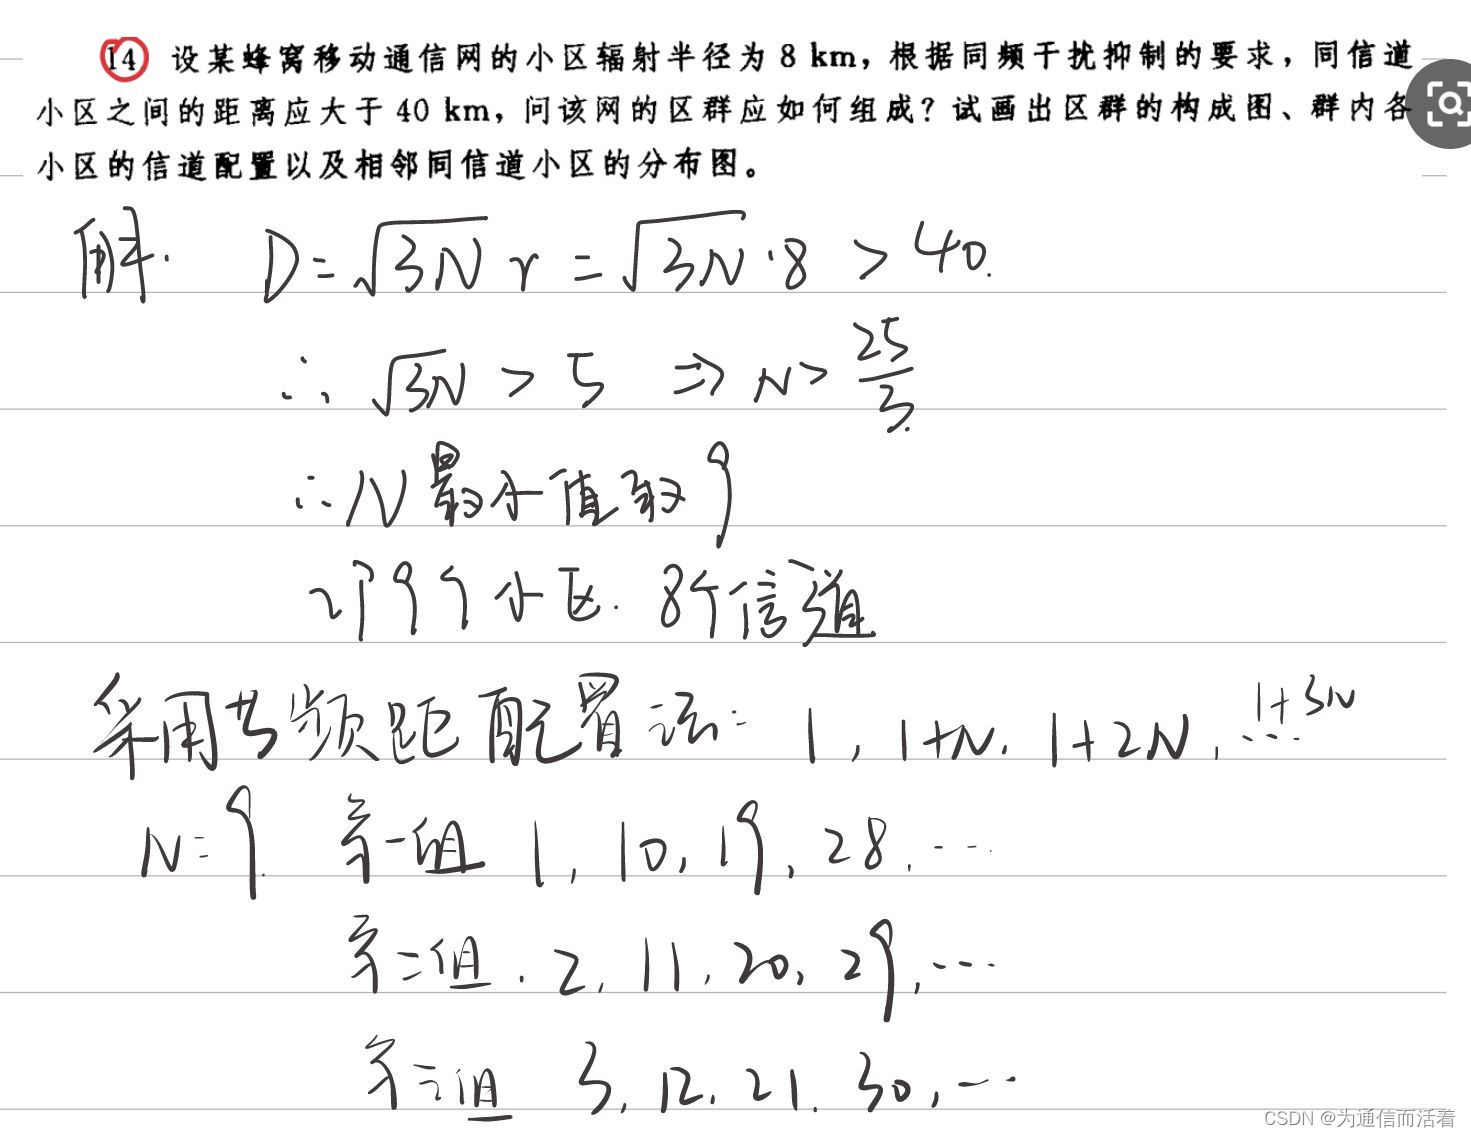 14 设某蜂窝移动通信网的小区辐射半径为 8 km，根据同频干扰抑制的要求，同信道
小区之间的距离应大于 40 km，问该网的区群应如何组成？试画出区群的构成图、群内各
小区的信道配置以及相邻同信道小区的分布图。
解. D = √3N r = √3N · 8 > 40.
∴ √3N > 5 ⇒ N > 25/3.
∴ N 最小值取 9
9个小区. 8个信道
采用等频距配置法: 1, 1+N, 1+2N, 1+3N ...
N=9. 第一组 1, 10, 19, 28, ...
第二组. 2, 11, 20, 29, ...
第三组 3, 12, 21, 30, ...
CSDN @为通信而活着